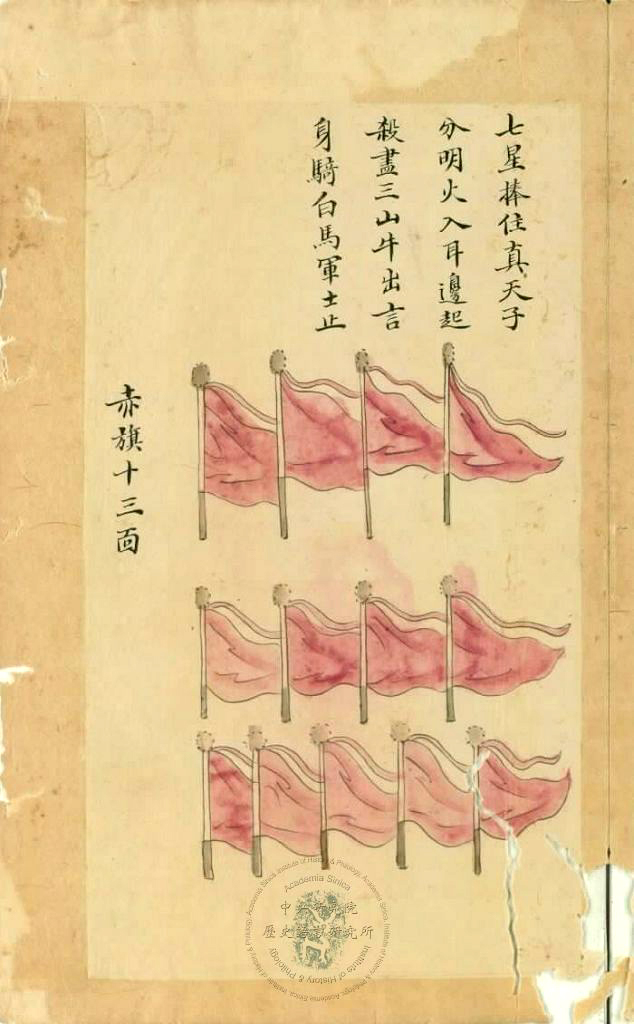 七星捧住真天子
分明火入耳邊起
殺盡三山牛出言
身騎白馬軍士止
赤旗十三面
Academia Sinica
中央研究院
歷史語言研究所
Institute of History & Philology